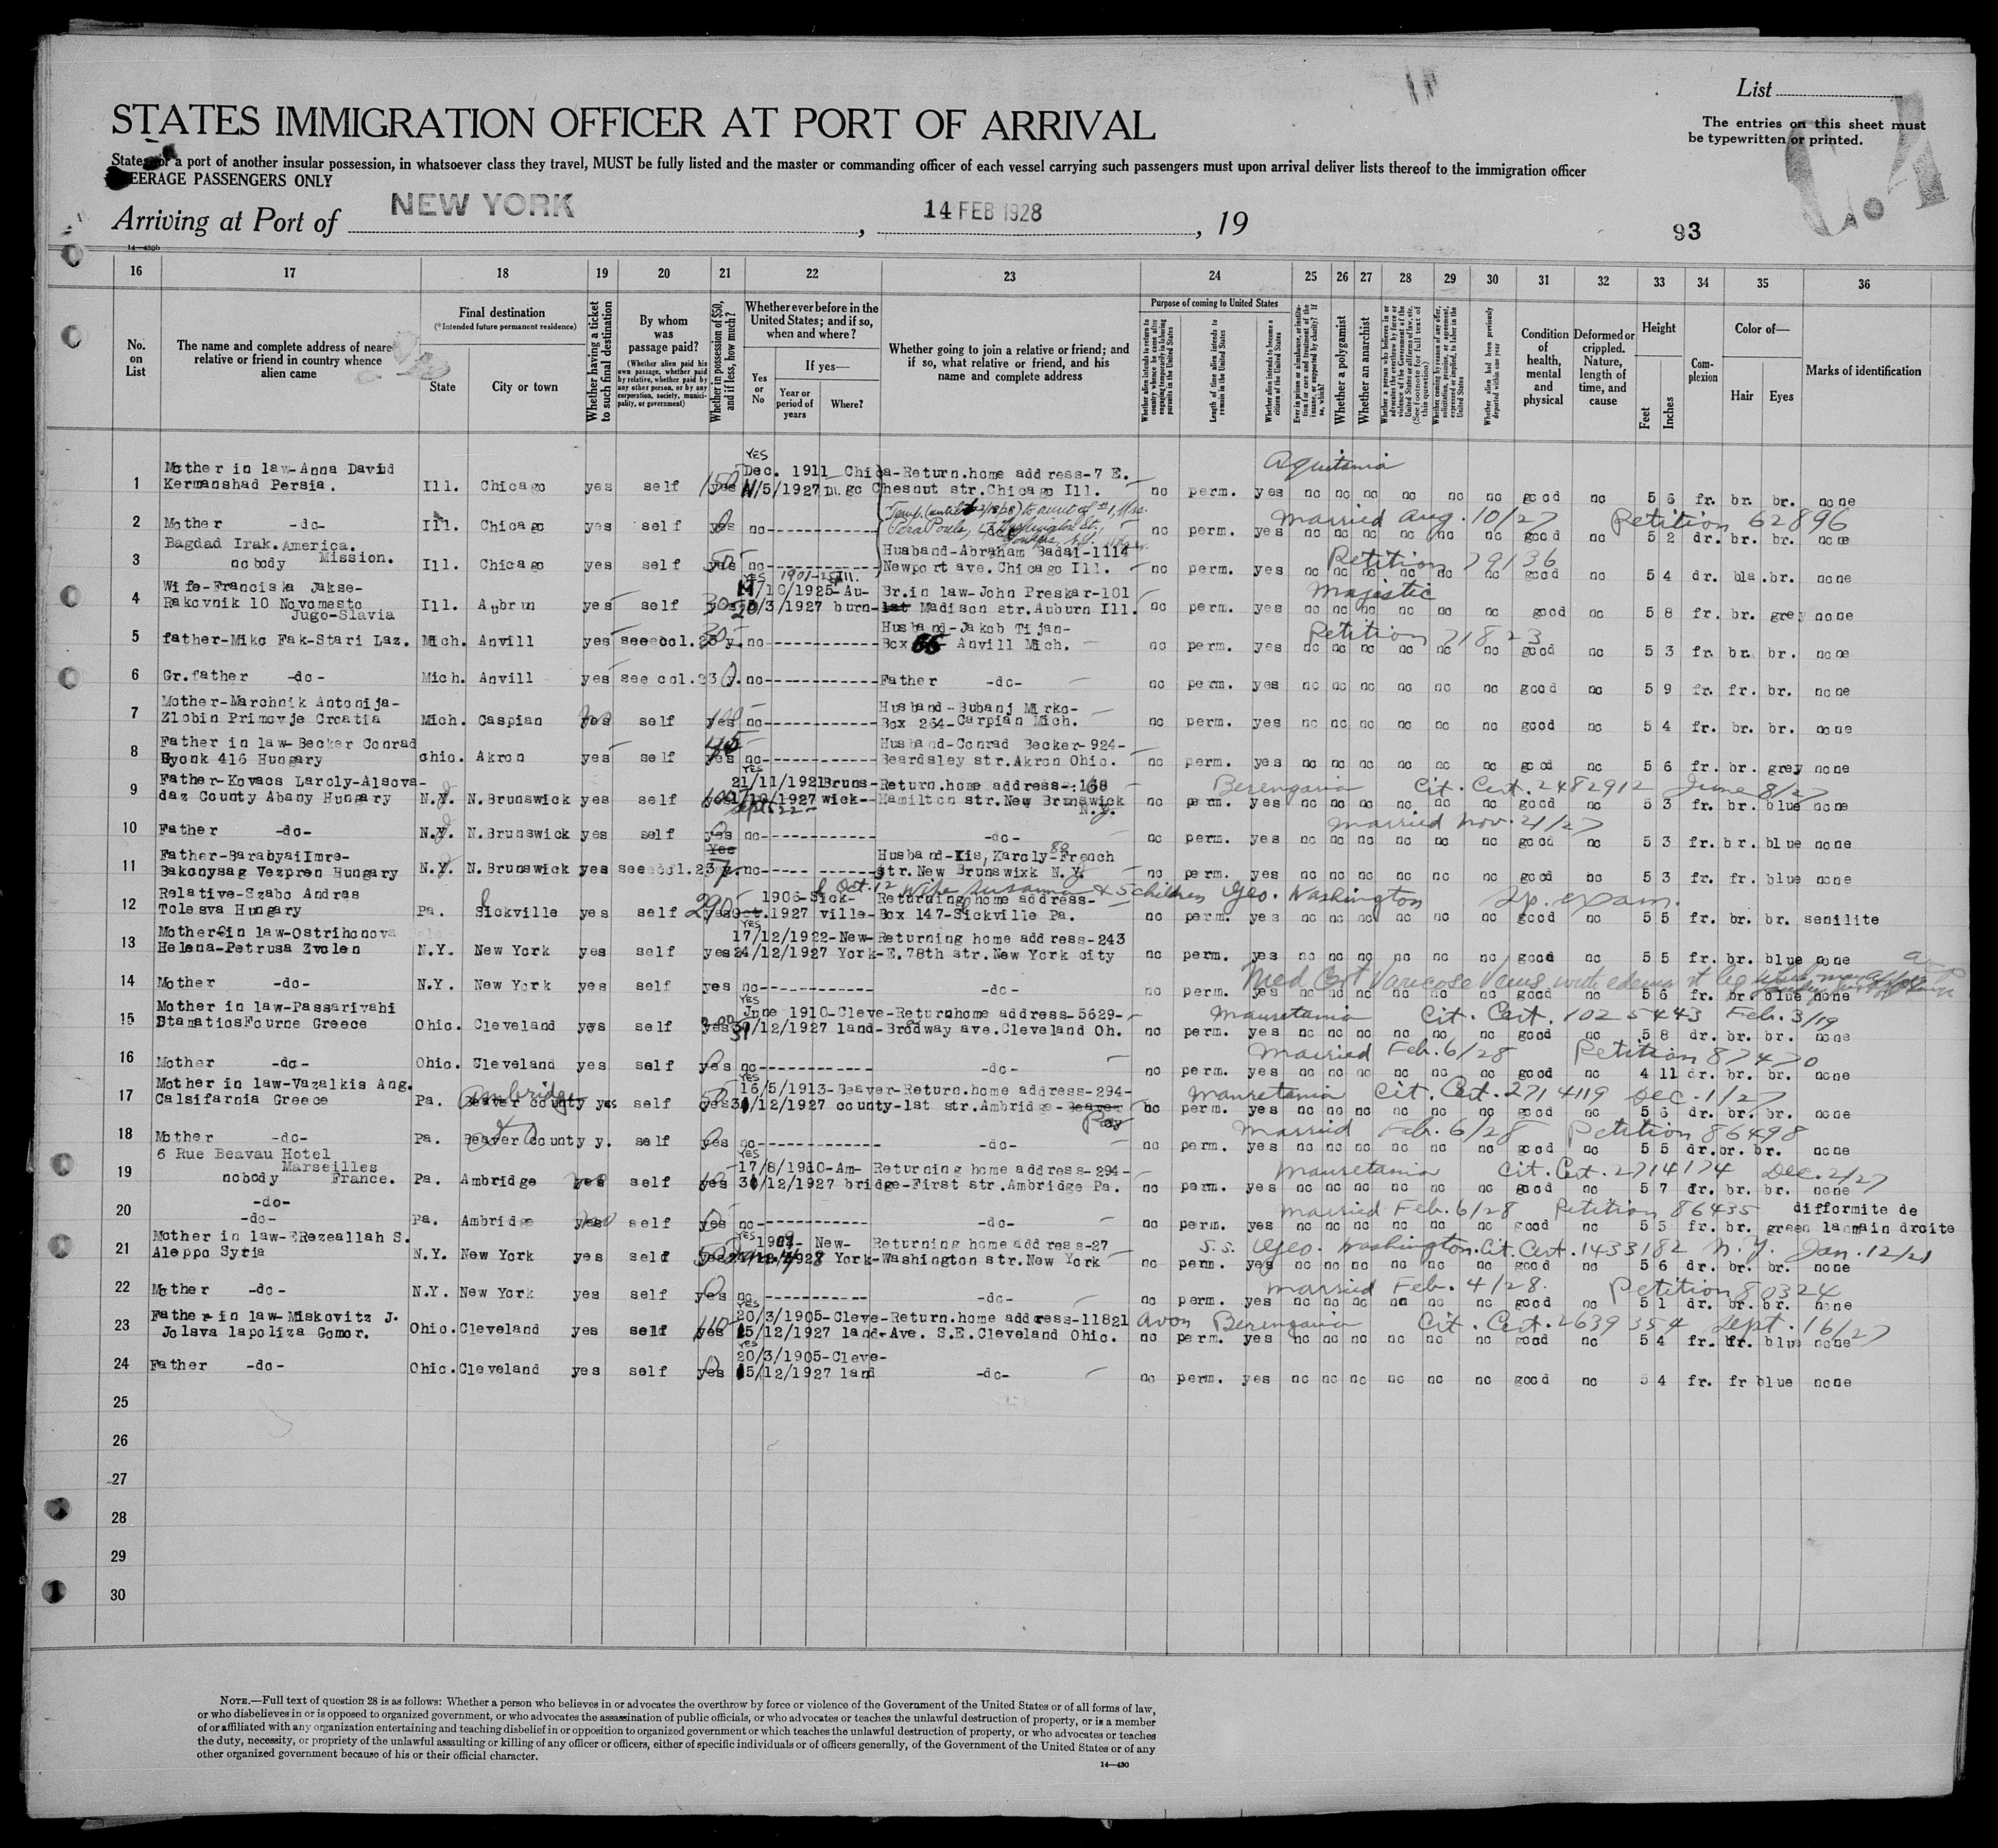 List
The entries on this sheet must
be typewritten or printed.
STATES IMMIGRATION OFFICER AT PORT OF ARRIVAL
States, or a port of another insular possession, in whatsoever class they travel, MUST be fully listed and the master or commanding officer of each vessel carrying such passengers must upon arrival deliver lists thereof to the immigration officer
EERAGE PASSENGERS ONLY
Arriving at Port of NEW YORK , 14 FEB 1928 , 19
93
14—430b
16 17 18 19 20 21 22 23 24 25 26 27 28 29 30 31 32 33 34 35 36
No. on List
The name and complete address of nearest relative or friend in country whence alien came
Final destination
(*Intended future permanent residence)
State City or town
Whether having a ticket to such final destination
By whom was passage paid?
(Whether alien paid his own passage, whether paid by relative, whether paid by any other person, or by any corporation, society, municipality, or government)
Whether in possession of $50, and if less, how much?
Whether ever before in the United States; and if so, when and where?
Yes or No
If yes—
Year or period of years
Where?
Whether going to join a relative or friend; and if so, what relative or friend, and his name and complete address
Purpose of coming to United States
Whether alien intends to return to country whence he came after engaging temporarily in laboring pursuits in the United States
Length of time alien intends to remain in the United States
Whether alien intends to become a citizen of the United States
Whether a polygamist
Whether an anarchist
Whether alien had been previously deported within one year
Condition of health, mental and physical
Deformed or crippled. Nature, length of time, and cause
Height
Feet Inches
Complexion
Color of—
Hair Eyes
Marks of identification
YES Aquitania
Mother in law-Anna David Dec. 1911 Chica-Return.home address-7 E.
1 Kermanshad Persia. Ill. Chicago yes self yes /5/1927 go Chesnut str.Chicago Ill. no perm. yes no no no no no no good no 5 6 fr. br. br. none
Married Aug. 10/27 Petition 62896
2 Mother -do- Ill. Chicago yes self yes no no perm. yes no no no no no no good no 5 2 dr. br. br. none
Bagdad Irak.America. Husband-Abraham Badal-1114 Petition 79136
3 nobody Mission. Ill. Chicago yes self yes no Newport ave.Chicago Ill. no perm. yes no no no no no no good no 5 4 dr. bla.br. none
Wife-Franciska Jakse- /10/1925-Au- Br.in law-John Preskar-101 Majestic
4 Rakovnik 10 Novomesto Ill. Aubrun yes self /3/1927 burn- Madison str.Auburn Ill. no perm. yes no no no no no no good no 5 8 fr. br. grey none
Jugo-Slavia
Husband-Jakob Tijan- Petition 71823
5 father-Miko Fak-Stari Laz. Mich. Anvill yes see col.23 y. no Box 66 Anvill Mich. no perm. yes no no no no no no good no 5 3 fr. br. br. none
6 Gr.father -do- Mich. Anvill yes see col.23 y. no Father -do- no perm. yes no no no no no no good no 5 9 fr. fr. br. none
Mother-Marchnik Antonija- Husband-Bubanj Mirko-
7 Zlobin Primovje Croatia Mich. Caspian yes self yes no Box 264-Carpian Mich. no perm. yes no no no no no no good no 5 4 fr. br. br. none
Father in law-Becker Conrad Husband-Conrad Becker-924-
8 Gyonk 416 Hungary Ohio. Akron yes self yes no Beardsley str.Akron Ohio. no perm. yes no no no no no no good no 5 6 fr. br. grey none
YES
Father-Kovacs Laroly-Alsova- 21/11/1921Bruns-Return.home address-168 Berengaria Cit. Cert. 2482912 June 8/27
9 daz County Abany Hungary N.Y. N.Brunswick yes self /1927 wick-- Hamilton str.New Brunswick no perm. yes no no no no no no good no 5 3 fr. br. blue none
Sept. 22 N.
Married Nov. 21/27
10 Father -do- N.Y. N.Brunswick yes self yes no -do- no perm. yes no no no no no no good no 5 3 fr. br. blue none
Father-BarabyaiImre- Husband-Kis, Karoly-80 French
11 Bakonysag Vezpren Hungary N.Y. N.Brunswick yes see col.23 y. no str.New Brunswixk N. no perm. yes no no no no no no good no 5 3 fr. fr. blue none
Oct. 12 Wife Susanna & 5 children Geo. Washington Sp. exam.
Relative-Szabo Andras 1906-Sick- Returning home address-
12 Tolesva Hungary Pa. Sickville yes self 290 yes Oct.1927 ville-Box 147-Sickville Pa. no perm. yes no no no no no no good no 5 5 fr. br. br. senilite
YES
Mother in law-Ostrihonova 17/12/1922-New-Returning home address-243
13 Helena-Petrusa Zvolen N.Y. New York yes self yes 24/12/1927 York-E.78th str.New York city no perm. yes no no no no no no good no 5 5 fr. br. blue none
Med Cert Varicose Veins with edema rt leg
14 Mother -do- N.Y. New York yes self yes no -do- no perm. yes no no no no no no good no 5 6 fr. br. blue none
YES
Mother in law-Passarivahi June 1910-Cleve-Returnhome address-5629- Mauretania Cit. Cert. 1025443 Feb. 3/19
15 StamaticsFourne Greece Ohio. Cleveland yes self yes 31/12/1927 land-Brodway ave.Cleveland Oh. no perm. yes no no no no no no good no 5 8 dr. br. br. none
Married Feb. 6/28 Petition 87470
16 Mother -do- Ohio. Cleveland yes self yes no -do- no perm. yes no no no no no no good no 4 11 dr. br. br. none
YES
Mother in law-Vazalkis Ang. Ambridge 16/5/1913-Beaver-Return.home address-294- Mauretania Cit. Cert. 2714119 Dec. 1/27
17 Calsifarnia Greece Pa. Beaver county yes self yes 31/12/1927 county-1st str.Ambridge-Beaver no perm. yes no no no no no no good no 5 6 dr. br. br. none
Married Feb. 6/28 Petition 86498
18 Mother -do- Pa. Beaver County y. self yes no -do- no perm. yes no no no no no no good no 5 5 dr.br. br. none
6 Rue Beavau Hotel YES
Marseilles 17/8/1910-Am- Returning home address-294- Mauretania Cit. Cert. 2714174 Dec. 2/27
19 nobody France. Pa. Ambridge yes self yes 31/12/1927 bridge-First str.Ambridge Pa. no perm. yes no no no no no no good no 5 7 dr. br. br. none
-do- Married Feb. 6/28 Petition 86435 difformite de
20 -do- Pa. Ambridge yes self yes no -do- no perm. yes no no no no no no good no 5 5 fr. br. green lamain droite
YES
Mother in law-ERezeallah S. New- Returning home address-27 S.S. Geo. Washington. Cit. Cert. 1433182 N.Y. Jan. 12/21
21 Aleppo Syria N.Y. New York yes self yes York-Washington str.New York no perm. yes no no no no no no good no 5 6 dr. br. br. none
Married Feb. 4/28. Petition 80324
22 Mother -do- N.Y. New York yes self yes no -do- no perm. yes no no no no no no good no 5 1 dr. br. br. none
YES
Father in law-Miskovitz J. 20/3/1905-Cleve-Return.home address-11821 Avon Berengaria Cit. Cert. 2639354 Sept. 16/27
23 Jolsva lapoliza Gomor. Ohio.Cleveland yes self 110 yes 15/12/1927 land-Ave. S.E.Cleveland Ohio. no perm. yes no no no no no no good no 5 4 fr. fr. blue none
YES
20/3/1905-Cleve-
24 Father -do- Ohio.Cleveland yes self yes 15/12/1927 land -do- no perm. yes no no no no no no good no 5 4 fr. fr blue none
25
26
27
28
29
30
NOTE.—Full text of question 28 is as follows: Whether a person who believes in or advocates the overthrow by force or violence of the Government of the United States or of all forms of law,
or who disbelieves in or is opposed to organized government, or who advocates the assassination of public officials, or who advocates or teaches the unlawful destruction of property, or is a member
of or affiliated with any organization entertaining and teaching disbelief in or opposition to organized government or which teaches the unlawful destruction of property, or who advocates or teaches
the duty, necessity, or propriety of the unlawful assaulting or killing of any officer or officers, either of specific individuals or of officers generally, of the Government of the United States or of any
other organized government because of his or their official character.
14—430